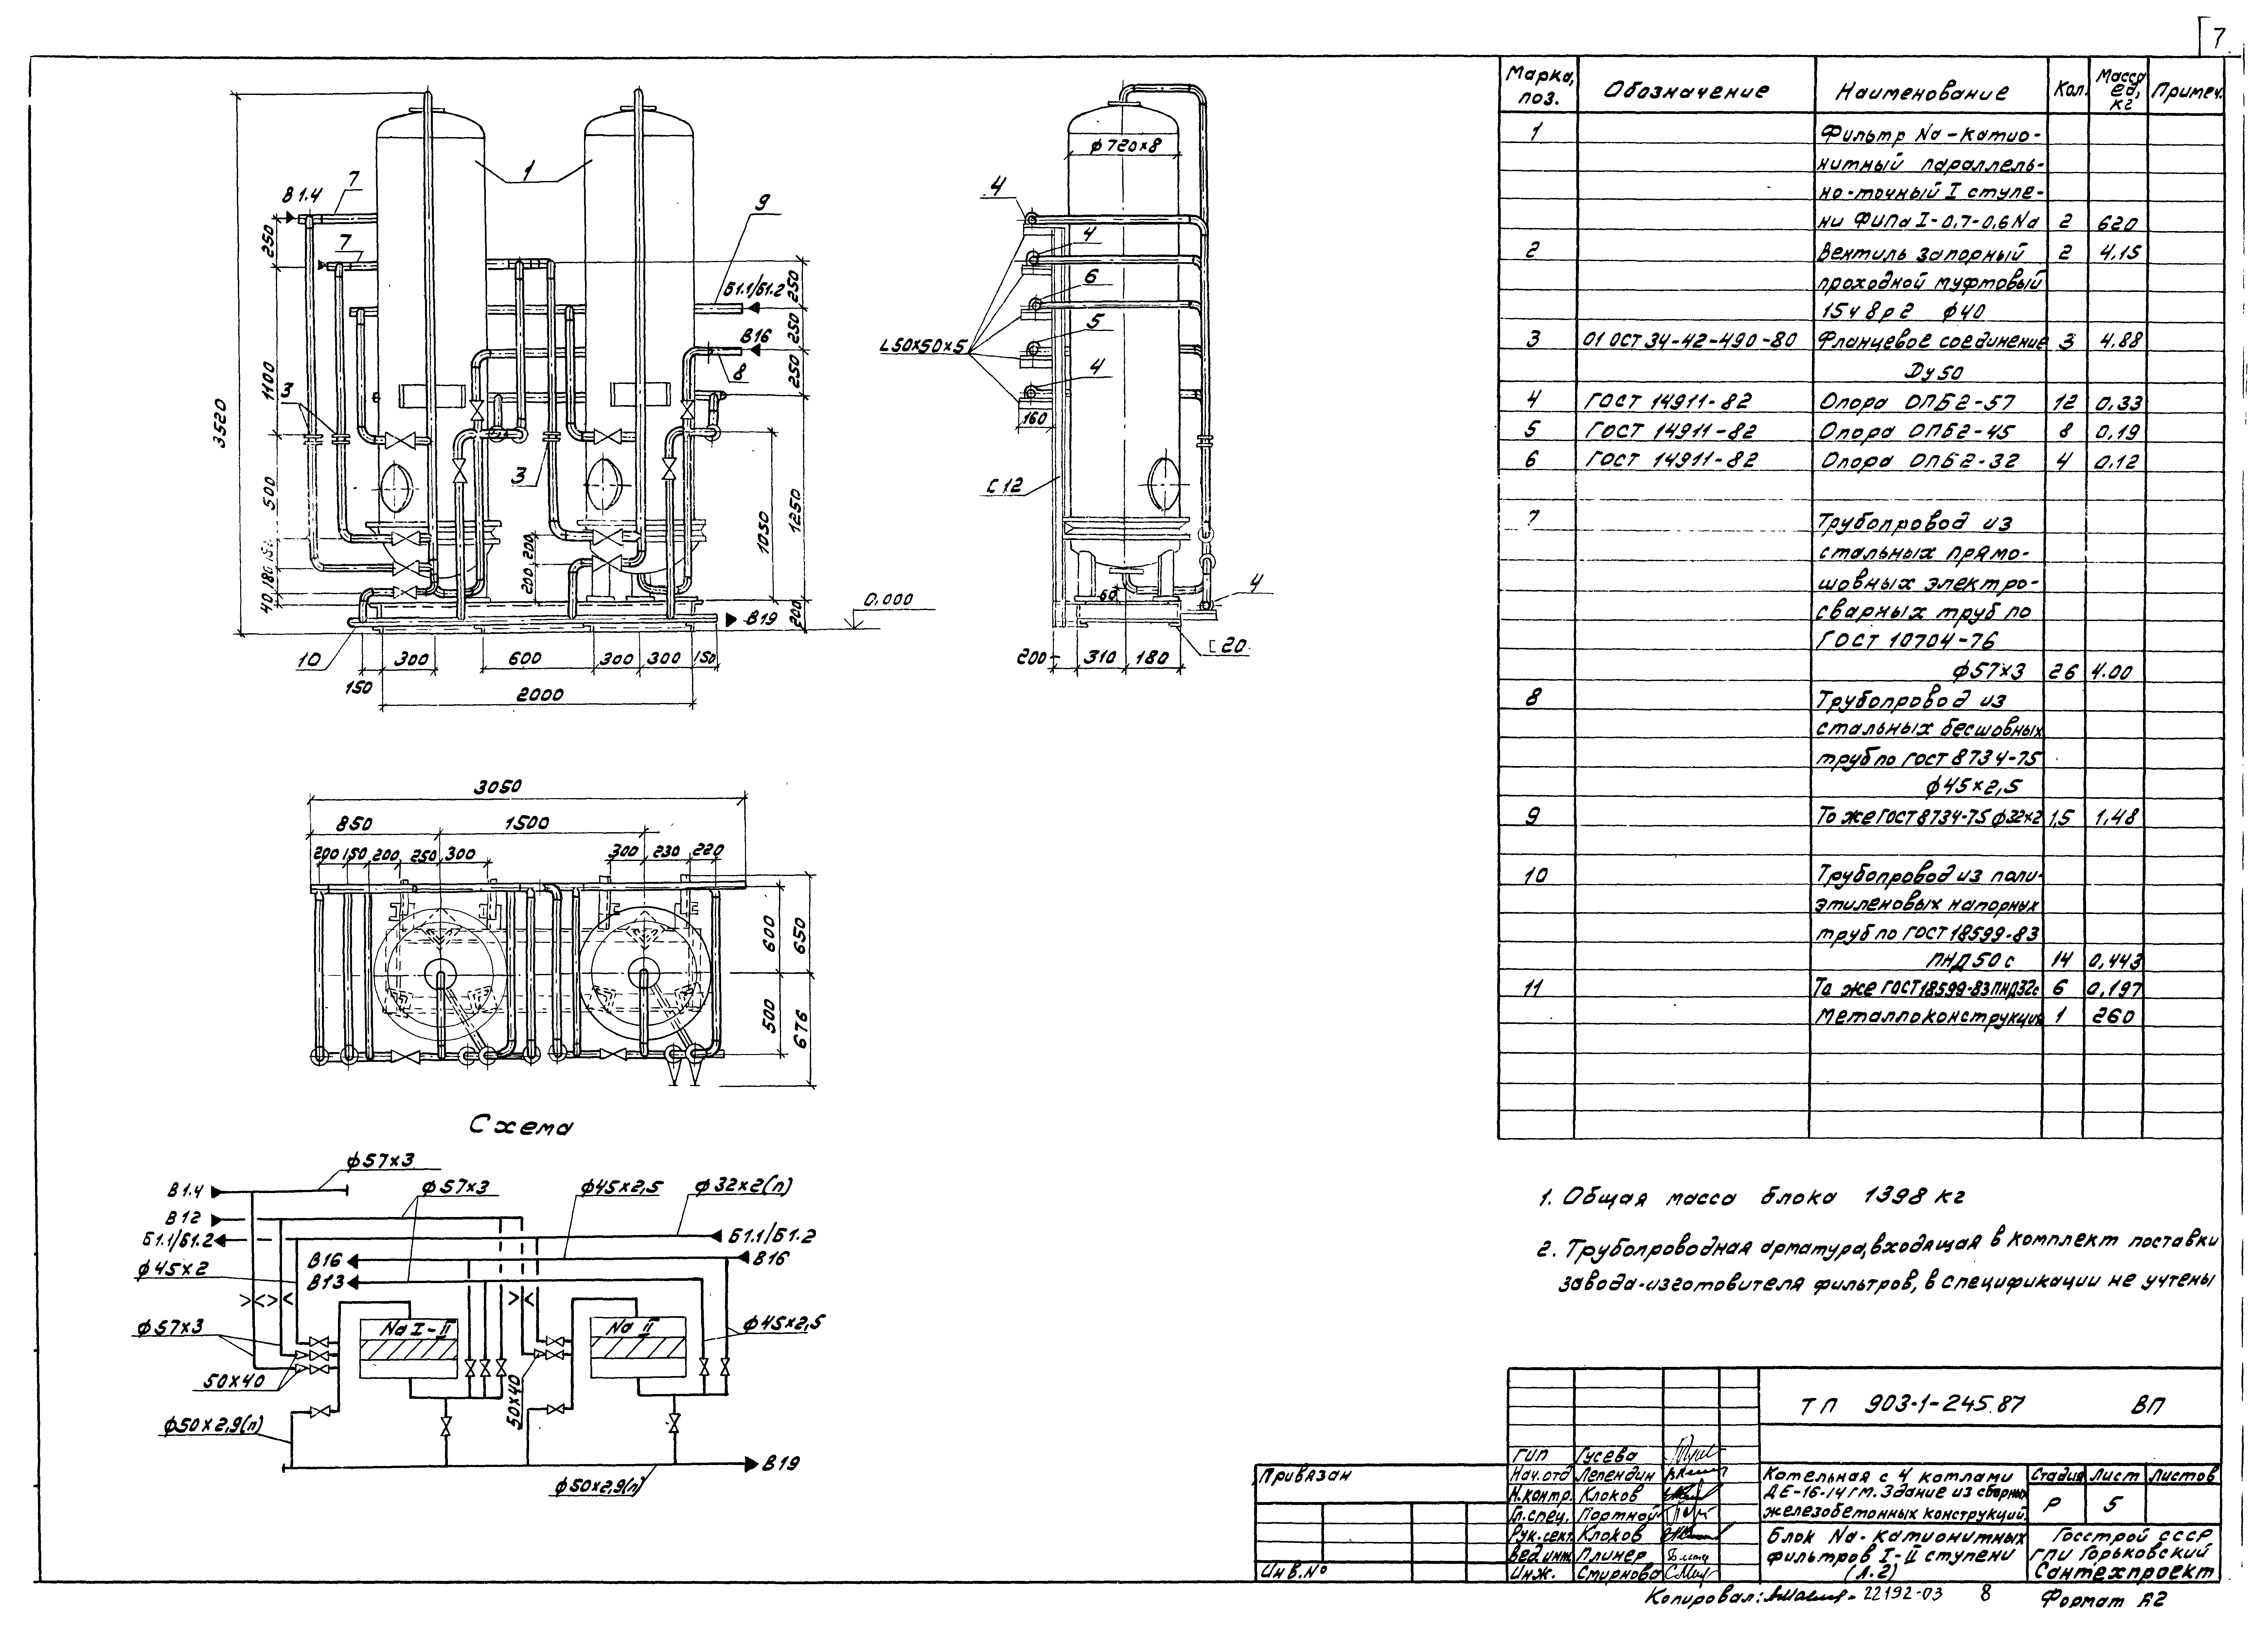 7
Марка, поз. Обозначение Наименование Кол. Масса ед, кг Примеч.
1 Фильтр Na-катио-
нитный параллель-
но-точный I ступе-
ни ФИПа I-0,7-0,6 Na 2 620
2 Вентиль запорный 2 4.15
проходной муфтовый
15ч8р2 ф40
3 01 ОСТ 34-42-490-80 Фланцевое соединение 3 4.88
Ду50
4 ГОСТ 14911-82 Опора ОПБ2-57 12 0,33
5 ГОСТ 14911-82 Опора ОПБ2-45 8 0,19
6 ГОСТ 14911-82 Опора ОПБ2-32 4 0.12
7 Трубопровод из
стальных прямо-
шовных электро-
сварных труб по
ГОСТ 10704-76
ф57×3 26 4.00
8 Трубопровод из
стальных бесшовных
труб по ГОСТ 8734-75
ф45×2,5
9 То же ГОСТ 8734-75 ф32×2 1,5 1,48
10 Трубопровод из поли-
этиленовых напорных
труб по ГОСТ 18599-83
ПНД 50 с 14 0,443
11 То же ГОСТ 18599-83 ПНД32с 6 0,197
Металлоконструкция 1 260
3520
В1.4
7
7
1
9
Б1.1/Б1.2
В16
8
3
3
250
1100
500
150
180
40
250
250
250
1250
1050
200
200 200
0,000
В19
10
300 600 300 300 150
150
2000
ф720×8
4
4
6
5
4
L50×50×5
160
[12
60
4
[20
200 310 180
3050
850 1500
200 150 200 250 300 300 230 220
600 650
500 676
Схема
ф57×3
В1.4
ф57×3 ф45×2,5 ф32×2(п)
В12
Б1.1/Б1.2 Б1.1/Б1.2
В16 В16
ф45×2 В13
Na I-II Na II
ф57×3 ф45×2,5
50×40 50×40
ф50×2,9(п)
В19
ф50×2,9(п)
1. Общая масса блока 1398 кг
2. Трубопроводная арматура, входящая в комплект поставки
завода-изготовителя фильтров, в спецификации не учтены
ТП 903-1-245.87 ВП
Привязан
Инв.№
ГИП Гусева
Нач.отд Лепендин
Н.контр. Клоков
Гл.спец. Портной
Рук.сект. Клоков
Вед.инж. Плинер
Инж. Смирнова
Котельная с 4 котлами
ДЕ-16-14гм. Здание из сборных
железобетонных конструкций.
Стадия Лист Листов
Р 5
Блок Na-катионитных
фильтров I-II ступени
(Л.2)
Госстрой СССР
ГПИ Горьковский
Сантехпроект
Копировал: 22192-03 8 Формат А2